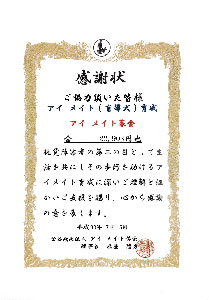 感謝状
ご協力頂いた皆様
アイメイト(盲導犬)育成
アイメイト募金
金 円也
視覚障害者の第二の目として生
活を共にしその歩行を助けるア
イメイト育成に深いご理解と温
かいご支援を賜り、心から感謝
の意を表します。
平成 年 月 日
アイメイト協会